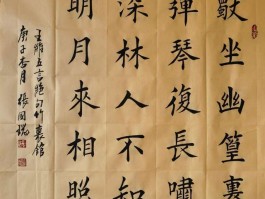 獨坐幽篁裏
彈琴復長嘯
深林人不知
明月來相照
王維五言絕句竹裏館
庚子杏月張國瑞